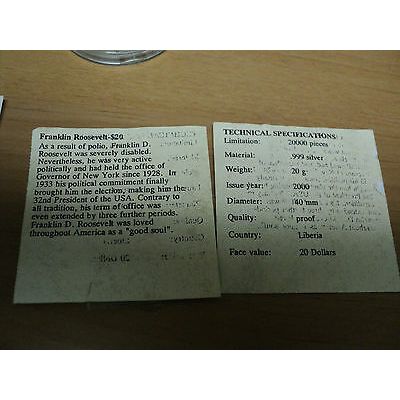 Franklin Roosevelt-$20
As a result of polio, Franklin D.
Roosevelt was severely disabled.
Nevertheless, he was very active
politically and had held the office of
Governor of New York since 1928. In
1933 his political commitment finally
brought him the election, making him the
32nd President of the USA. Contrary to
all tradition, his term of office was
even extended by three further periods.
Franklin D. Roosevelt was loved
throughout America as a "good soul".
TECHNICAL SPECIFICATIONS
Limitation: 20000 pieces
Material: .999 silver
Weight: 20 g
Issue year: 2000
Diameter: 40 mm
Quality: proof
Country: Liberia
Face value: 20 Dollars